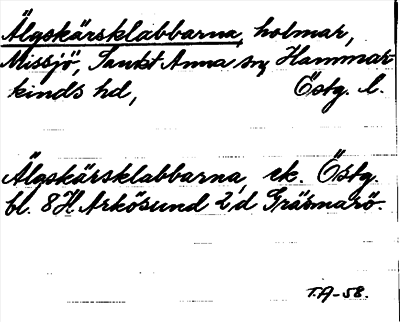 Älgskärsklabbarna, holmar,
Missjö, Sankt Anna sn, Hammar
kinds hd, Östg. l.
Älgskärsklabbarna, ek. Östg.
bl. 8H Arkösund 2 d Gräsmarö.
T.A-58.